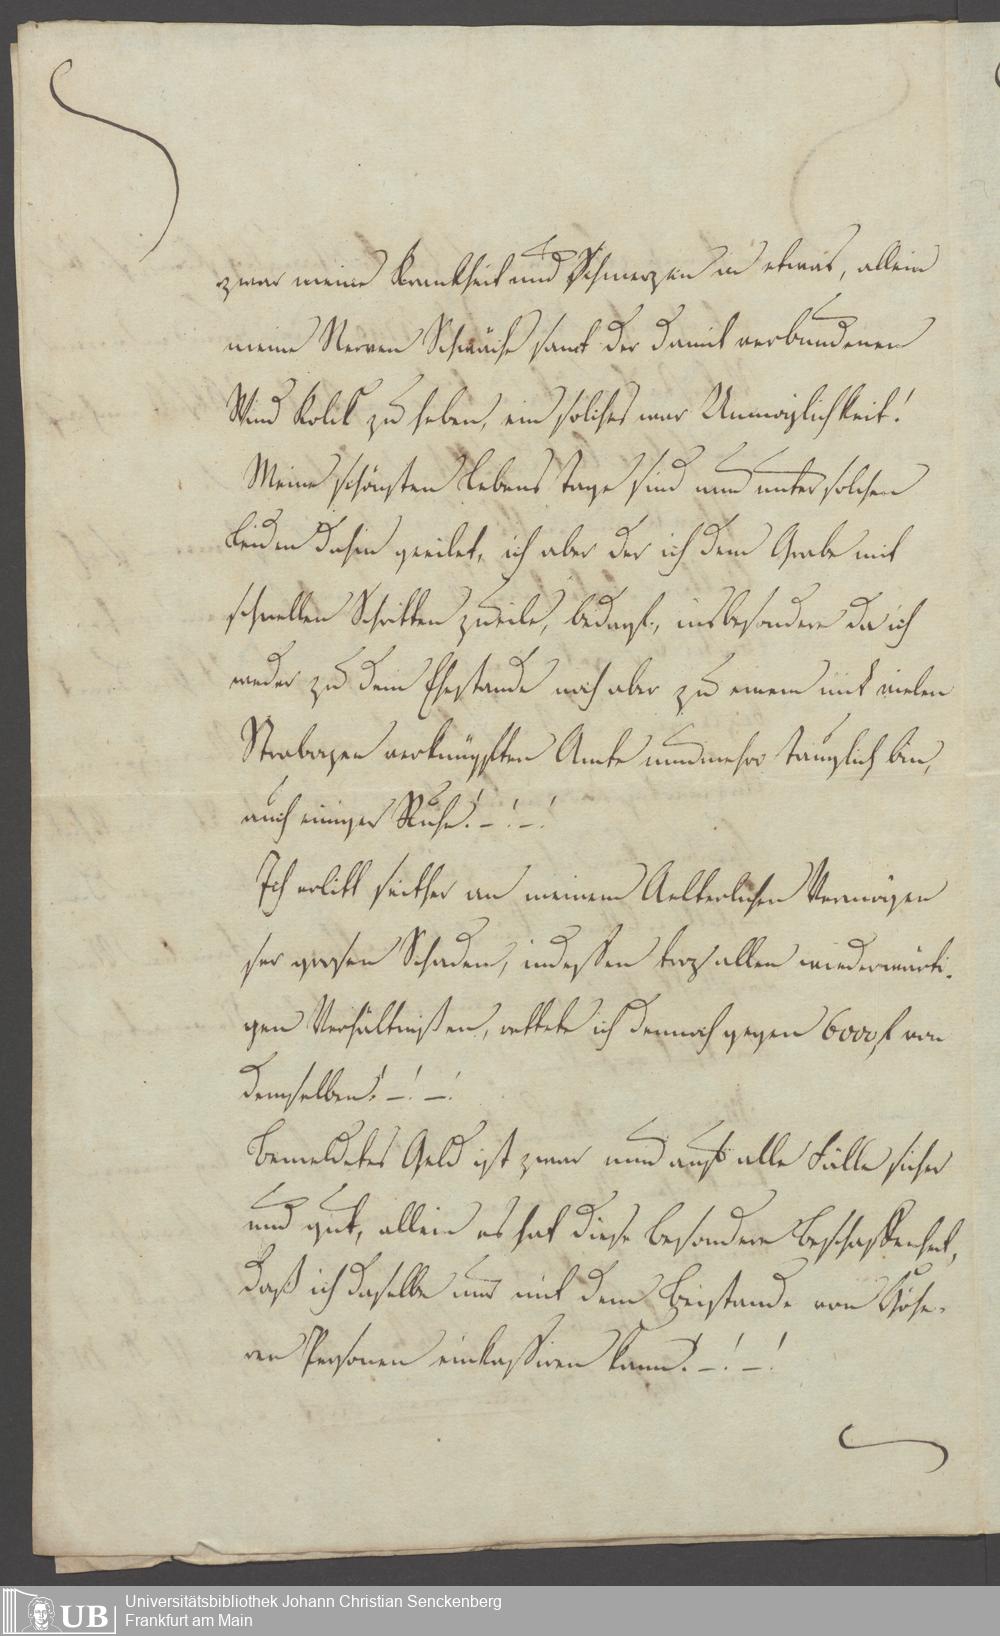 zwar meine Krankheit und Schmerzen in etwas, allein
meine Nerven Schwäche samt der damit verbundenen
Wind Kolik zu heben, ein solches war Unmöglichkeit!
Meine schönsten Lebens Tage sind nun unter solchen
Leiden dahin geeilet, ich aber der ich dem Grabe mit
schnellen Schritten zueile, bedarf, insbesondere da ich
weder zu dem Ehestande noch aber zu einem mit vielen
Strabazen verknüpften Amte nunmehro tauglich bin,
auch einiger Ruhe! – ! – !
Ich erlitt seither an meinem Aelterlichen Vermögen
ser grosen Schaden, indessen troz allen wiederwärti-
gen Verhältnißen, rettete ich dennoch gegen 6000 f von
demselben! – ! – !
Bemeldetes Geld ist zwar nun auf alle Fälle sicher
und gut, allein es hat diese besondere Beschaffenheit,
daß ich daselbe nur mit dem Beistande von Höhe-
ren Personen einkassiren kann! – ! – !
Universitätsbibliothek Johann Christian Senckenberg
Frankfurt am Main
UB